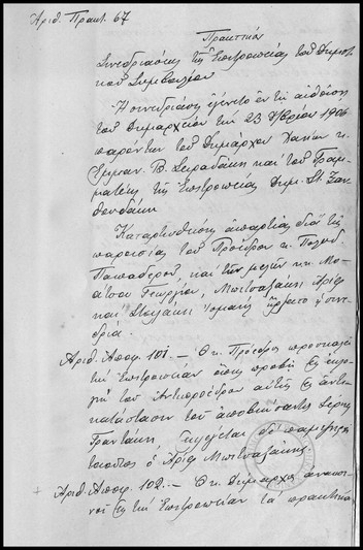 Αριθ. Πρακτ. 67
Πρακτικόν
Συνεδριάσεως της Επιτροπείας του Δημοτι
κού Συμβουλίου
Η συνεδρίασις εγένετο εν τη αιθούση
του Δημαρχείου τη 23 1906
παρόντων του Δημάρχου Χανίων κ.
Εμμαν. και του Γραμ
ματέως της Επιτροπείας Δημ. Στ. Ξαν
θουδάκη
Καταρτισθείσης απαρτίας δια της
παρουσίας του Προέδρου κ. Πολυδ.
Παπαδερού, και των μελών κκ. Μο
άτσου Γεωργίου, Μπιτσαξάκη Αριφ
και ήρξατο η συνε
δρία.
Αριθ. Αποφ. 101. — Ο κ. Πρόεδρος προσκαλεί
την Επιτροπείαν όπως προβή εις εκλο
γήν του Αντιπροέδρου αυτής εις αντι
κατάστασιν του αποβιώσαντος
Εκλέγεται δε παμψηφεί
ο Αριφ Μπιτσαξάκης.
Αριθ. Αποφ. 102. — Ο κ. Δήμαρχος ανακοι
νοί εις την Επιτροπείαν τα πρακτικά